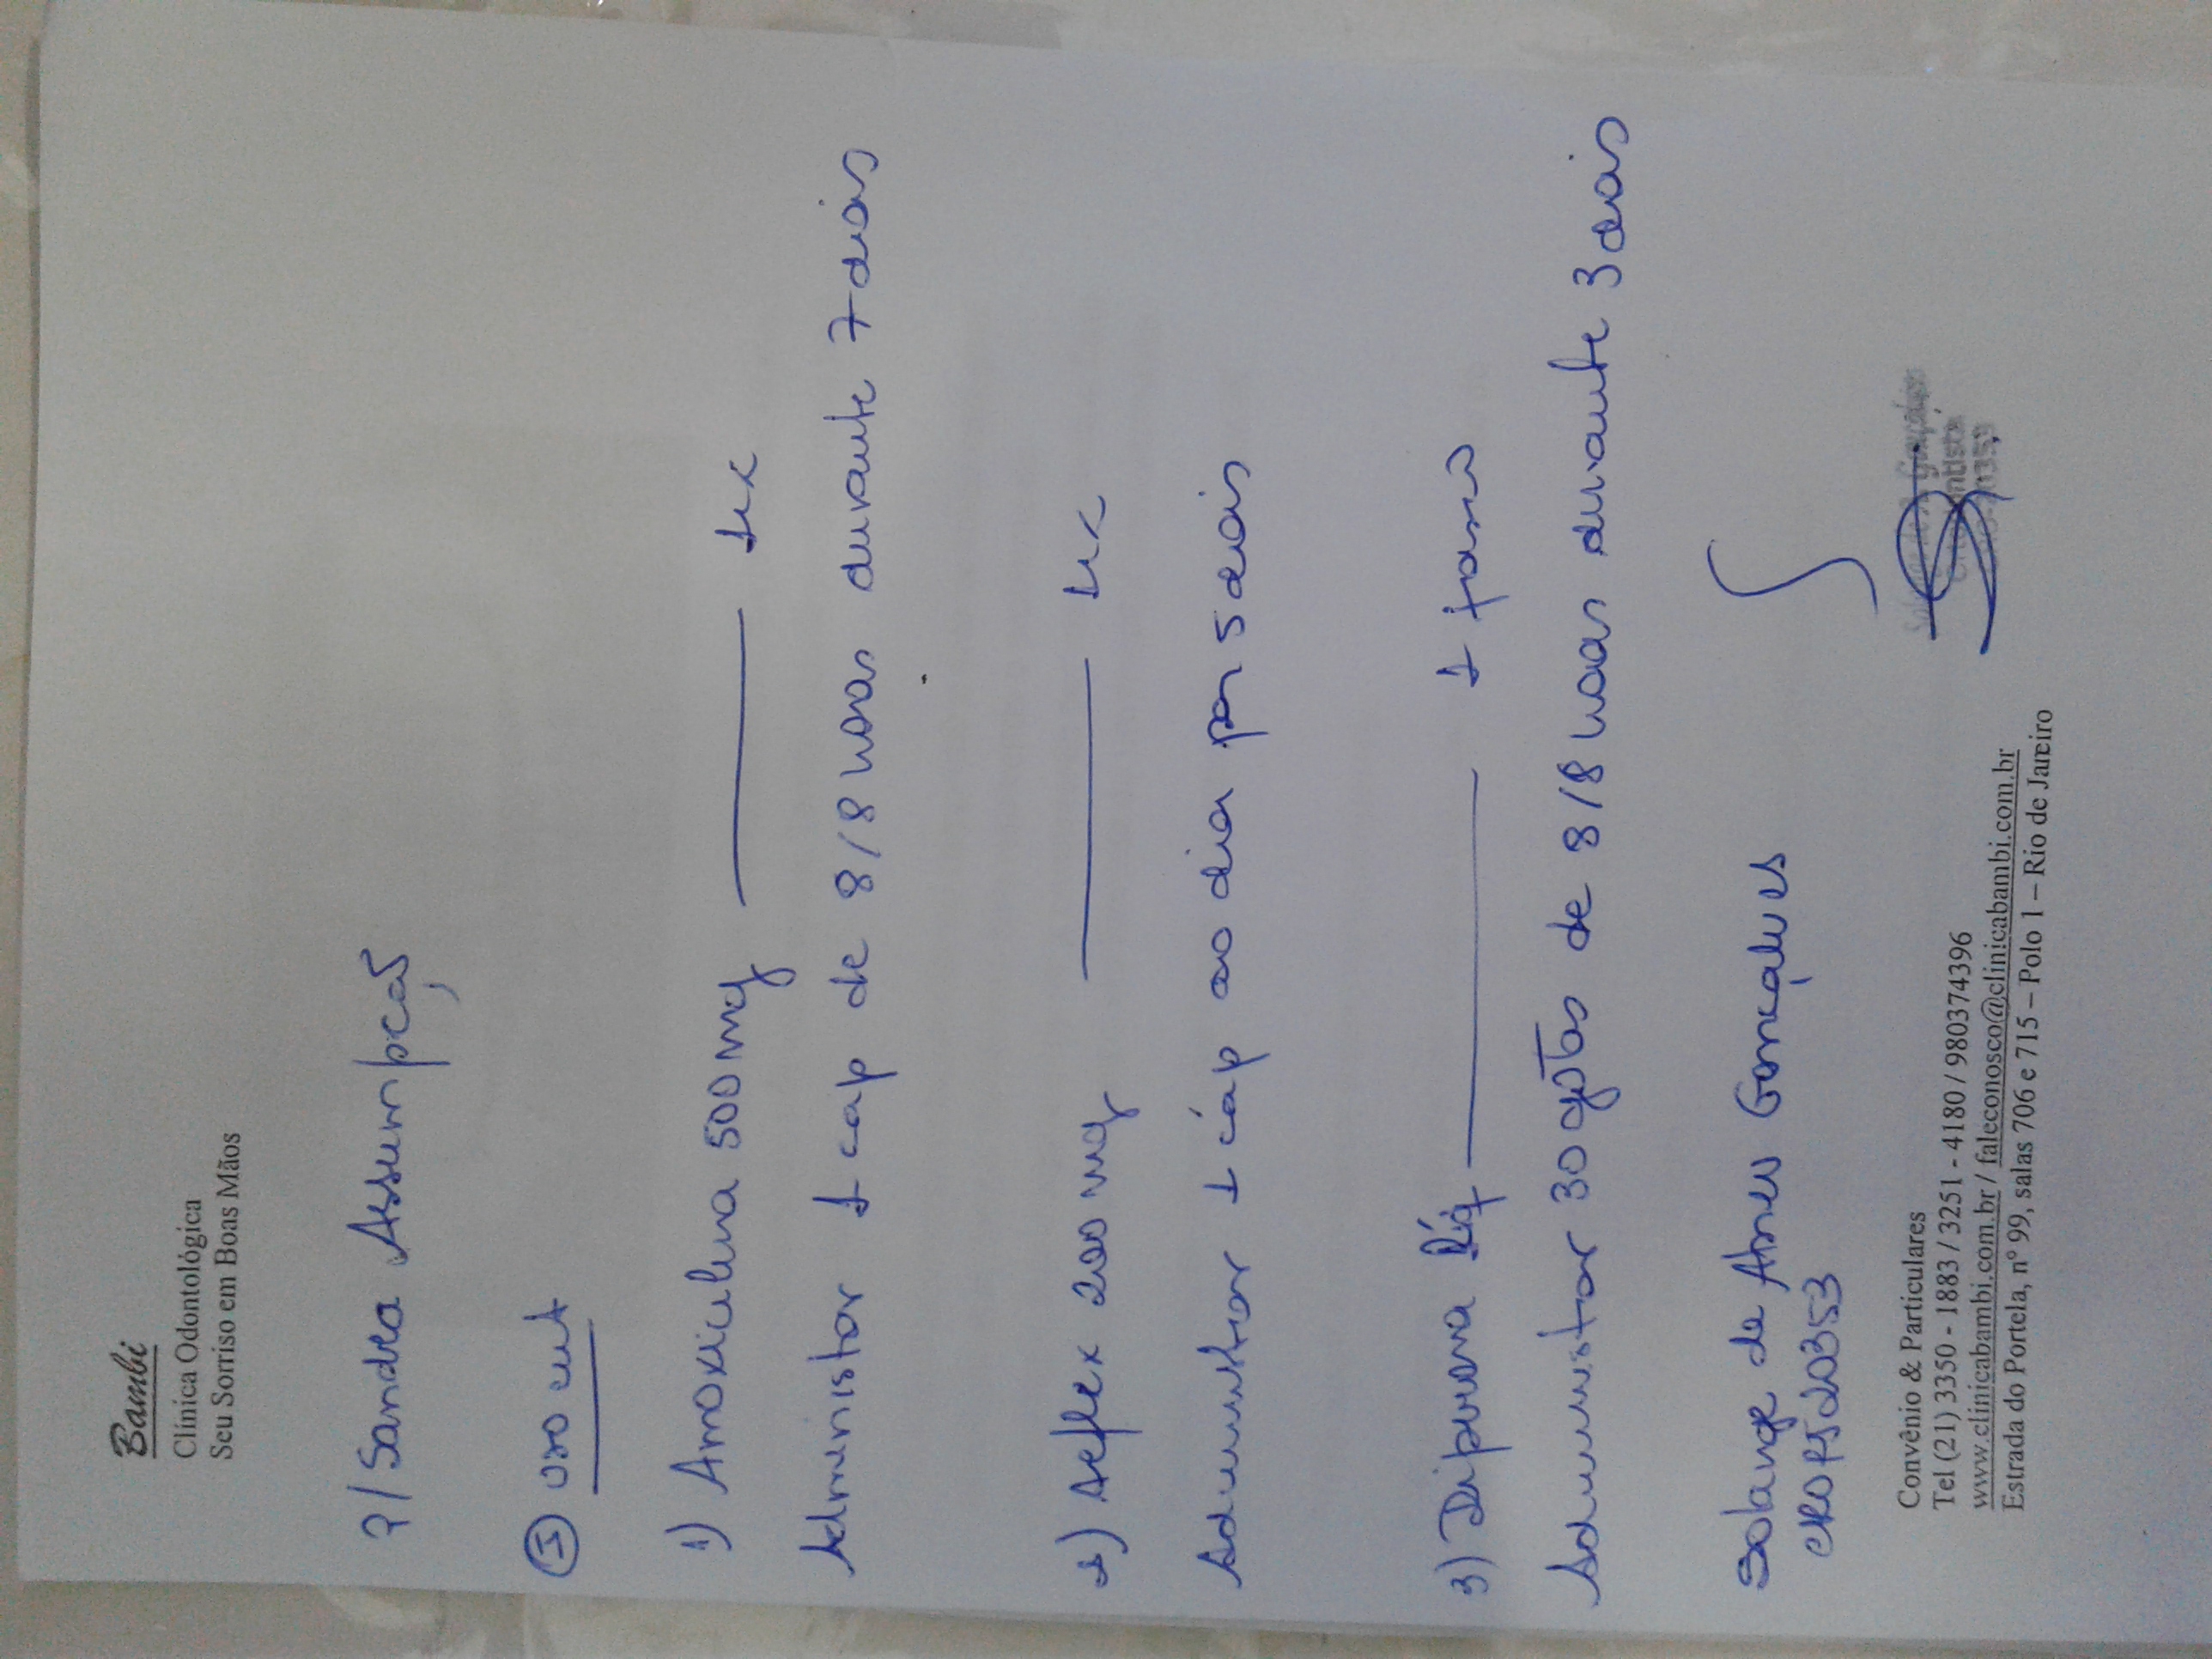 Bambi
Clínica Odontológica
Seu Sorriso em Boas Mãos
P/ Sandra Assumpção
I uso int
1) Amoxicilina 500mg ——— 1cx
Administrar 1 cap de 8/8 horas durante 7 dias
2) 200mg ——— 1cx
Administrar 1 cáp ao dia por 5 dias
3) Dipirona líq ——— 1 frasco
Administrar 30 gotas de 8/8 horas durante 3 dias
Solange de Abreu Gonçalves
CRO RJ 20353
Convênio & Particulares
Tel (21) 3350 - 1883 / 3251 - 4180 / 980374396
www.clinicabambi.com.br / faleconosco@clinicabambi.com.br
Estrada do Portela, nº 99, salas 706 e 715 – Polo 1 – Rio de Janeiro